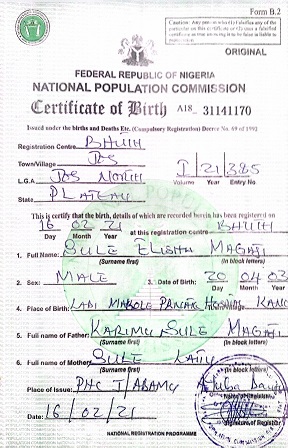 Form B.2
Caution: Any person who (1) falsifies any of the particular on this certificate or (2) uses a falsified certificate as true knowing it to be false is liable to
ORIGINAL
FEDERAL REPUBLIC OF NIGERIA
NATIONAL POPULATION COMMISSION
Certificate of Birth A18_ 31141170
Issued under the births and Deaths Etc. (Compulsory Registration) Decree No. 69 of 1992
Registration Centre BHUTH
Town/Village JOS
L.G.A JOS NORTH I 21 385
Volume Year Entry No
State PLATEAU
This is certify that the birth, details of which are recorded herein has been registered on
16 02 21 at this registration centre BHUTH
Day Month Year
1. Full Name: SULE ELISHA MAGAJI
(Surname first) (in block letters)
2. Sex: MALE 3. Date of Birth: 20 04 03
Day Month Year
4. Place of Birth: KANO
5. Full name of Father: KARIMU SULE MAGAJI
(Surname first) (in block letters)
6. Full name of Mother: SULE
(Surname first) (in block letters)
Place of Issue: PHC
Name of Registrar
Date: 16/02/21
Signature of Registrar
NATIONAL REGISTRATION PROGRAMME